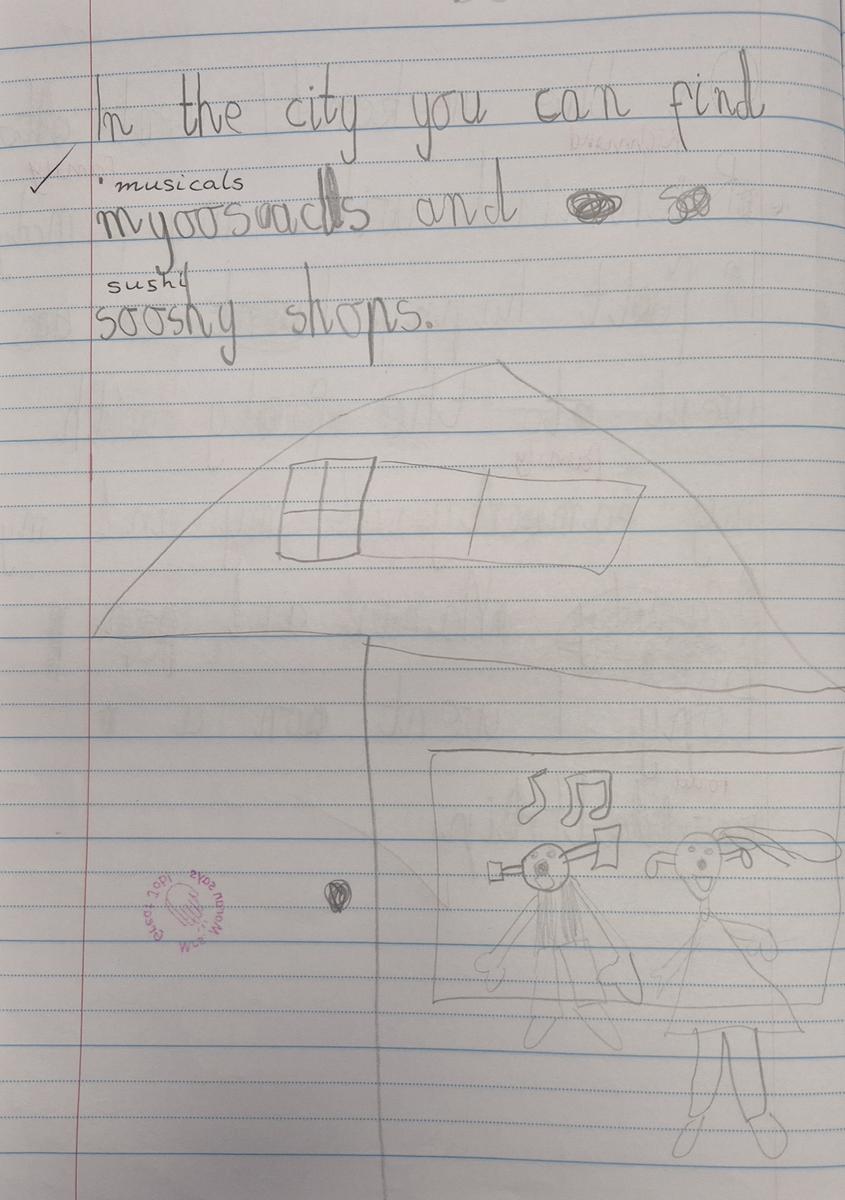 In the city you can find
musicals
myoosacls and
sushi
sooshy shops.
Great Job!
says